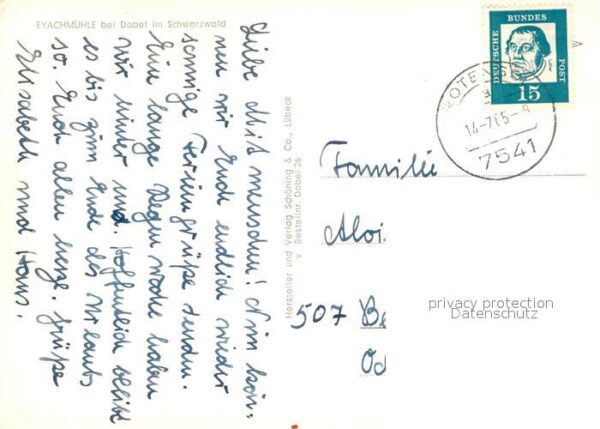 EYACHMÜHLE bei Dobel im Schwarzwald
Liebe Mitmenschen! Nun kön-
nen wir Euch endlich wieder
sonnige Feriengrüße senden.
Eine lange Regenwoche haben
wir hinter uns. Hoffentlich bleibt
es bis zum Ende des Urlaubs
so. Euch allen herzl. Grüße
Elisabeth und Hans.
Hersteller und Verlag Schöning & Co., Lübeck
v Bestellnr. Dobel 26
DEUTSCHE BUNDES POST
15
14-7.65-
7541
A
Familie
Aloi
507 Be
Od
privacy protection
Datenschutz